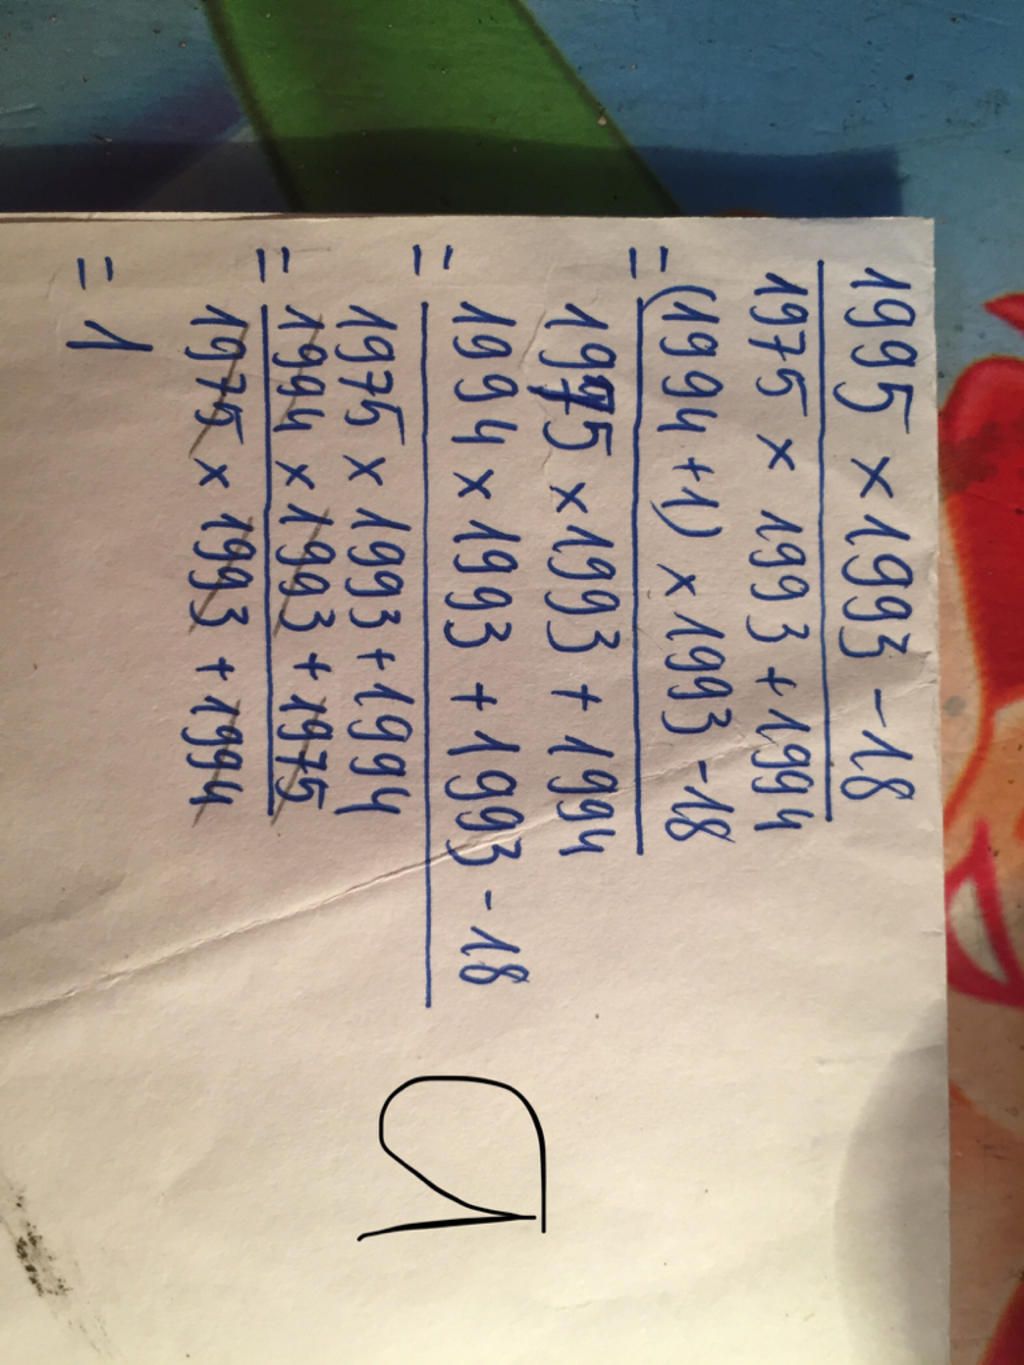 1995 × 1993 - 18
1975 × 1993 + 1994
= (1994 + 1) × 1993 - 18
1975 × 1993 + 1994
= 1994 × 1993 + 1993 - 18
1975 × 1993 + 1994
= 1994 × 1993 + 1975
1975 × 1993 + 1994
= 1